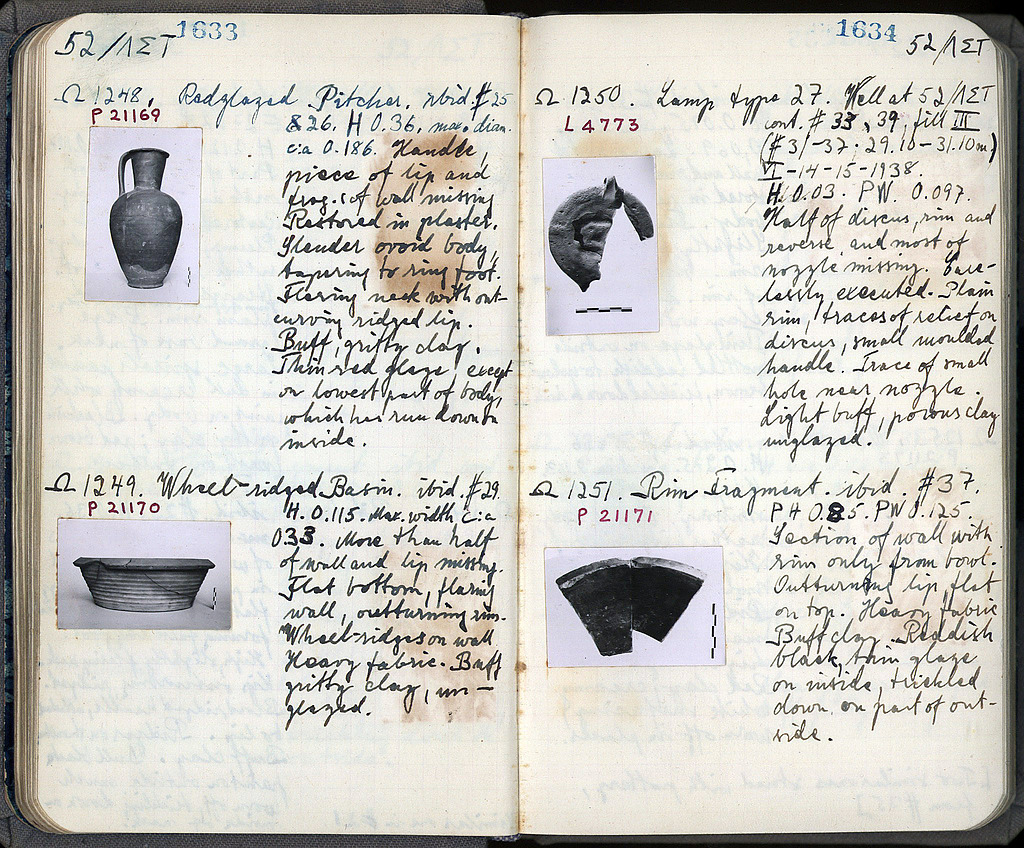 52/ΛΣΤ 1633
Ω 1248. Redglazed Pitcher. ibid. # 25
P 21169
& 26. H 0.36, max. diam.
c:a 0.186. Handle,
piece of lip and
frag. of wall missing
Restored in plaster.
Slender ovoid body,
tapering to ring foot.
Flaring neck with out-
curving ridged lip.
Buff, gritty clay.
Thin red glaze, except
on lowest part of body,
which has run down on
inside.
Ω 1249. Wheel-ridged Basin. ibid. # 29.
P 21170
H. 0.115. Max. width c:a
0.33. More than half
of wall and lip missing.
Flat bottom, flaring
wall, outturning rim.
Wheel-ridges on wall
Heavy fabric. Buff
gritty clay, un-
glazed.
1634 52/ΛΣΤ
Ω 1250. Lamp type 27. Well at 52/ΛΣΤ
L 4773
cont. # 33, 39, fill III
(#31-37·29.10-31.10m.)
VI-14-15-1938.
H. 0.03. P.W. 0.097.
Half of discus, rim and
reverse and most of
nozzle missing. Care-
lessly executed. Plain
rim, traces of relief on
discus, small moulded
handle. Trace of small
hole near nozzle.
Light buff, porous clay
unglazed.
Ω 1251. Rim Fragment. ibid. # 37.
P 21171
P H 0.85. P W 0.125.
Section of wall with
rim only from bowl.
Outturning lip, flat
on top. Heavy fabric
Buff clay. Reddish
black, thin glaze
on inside, trickled
down on part of out-
side.